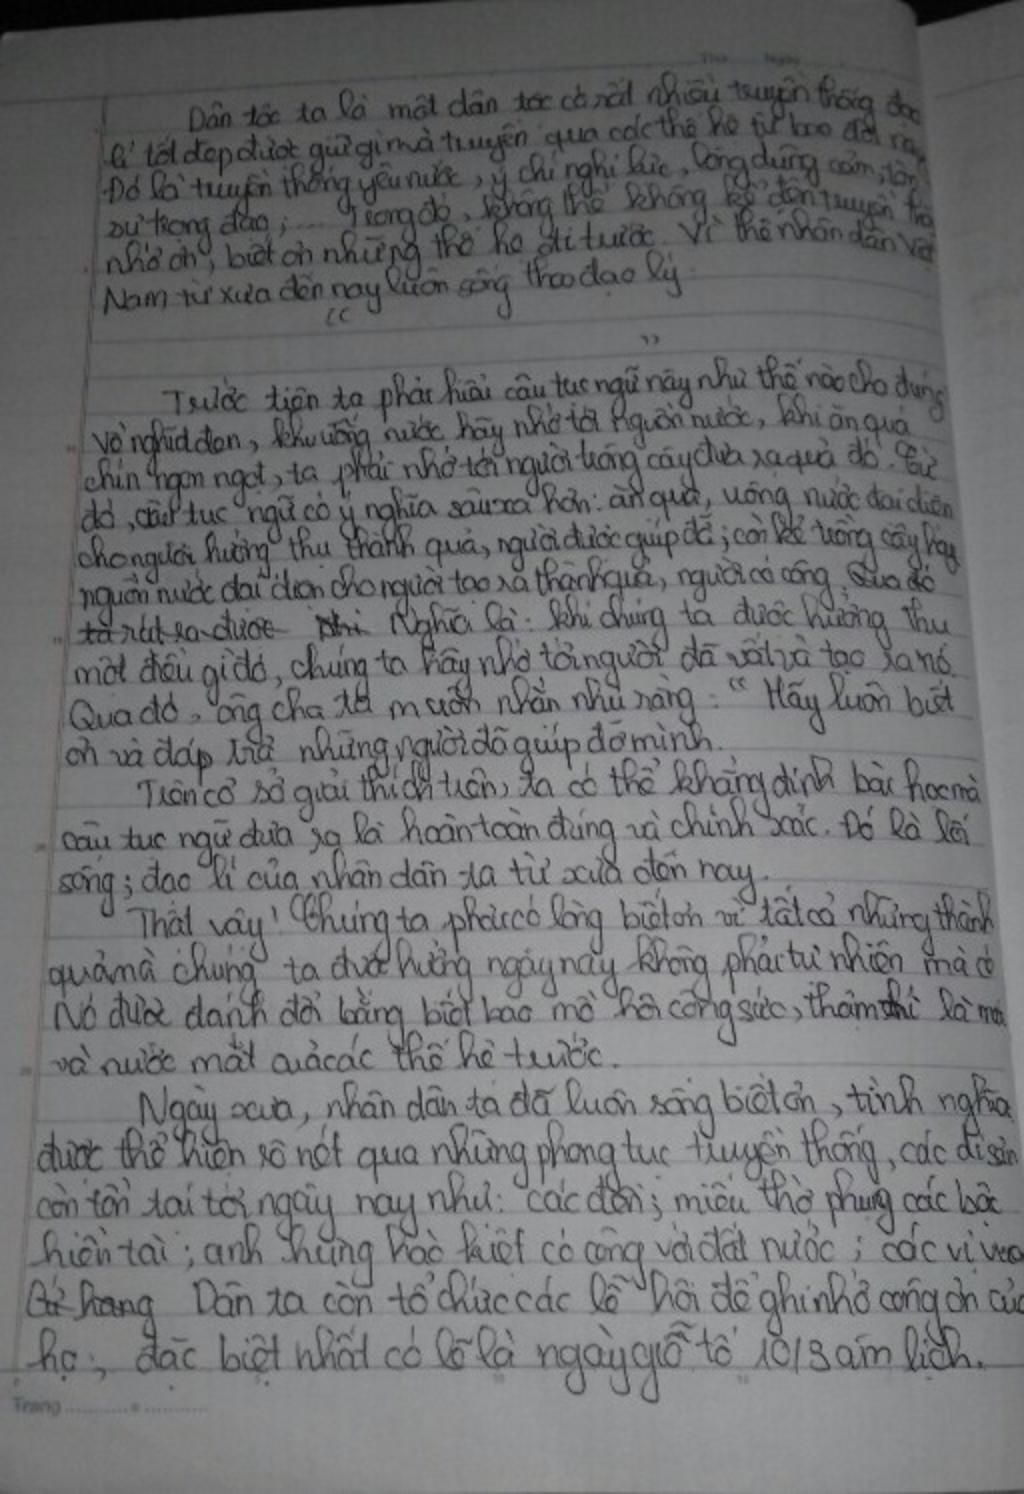 Dân tộc ta là một dân tộc có rất nhiều truyền thống đạo
lí tốt đẹp được giữ gìn và truyền qua các thế hệ từ bao đời nay
Đó là truyền thống yêu nước, ý chí nghị lực, lòng dũng cảm, tôn
sư trọng đạo;... Trong đó, không thể không kể đến truyền
nhớ ơn, biết ơn những thế hệ đi trước. Vì thế nhân dân Việt
Nam từ xưa đến nay luôn sống theo đạo lý
" "
Trước tiên ta phải hiểu câu tục ngữ này như thế nào cho đúng
Về nghĩa đen, khi uống nước hãy nhớ tới nguồn nước, khi ăn quả
chín ngon ngọt, ta phải nhớ tới người trồng cây đưa ra quả đó. Từ
đó, câu tục ngữ có ý nghĩa sâu xa hơn: ăn quả, uống nước đại diện
cho người hưởng thụ thành quả, người được giúp đỡ; còn kẻ trồng cây hay
nguồn nước đại diện cho người tạo ra thành quả, người có công. Qua đó
ta rút ra được Nghĩa là: khi chúng ta được hưởng thụ
một điều gì đó, chúng ta hãy nhớ tới người đã vất vả tạo ra nó.
Qua đó, ông cha ta muốn nhắn nhủ rằng: " Hãy luôn biết
ơn và đáp trả những người đã giúp đỡ mình.
Trên cơ sở giải thích trên, ta có thể khẳng định bài học mà
câu tục ngữ đưa ra là hoàn toàn đúng và chính xác. Đó là lối
sống; đạo lí của nhân dân ta từ xưa đến nay.
Thật vậy! Chúng ta phải có lòng biết ơn vì tất cả những thành
quả mà chúng ta được hưởng ngày nay không phải tự nhiên mà có
Nó được đánh đổi bằng biết bao mồ hôi công sức, thậm chí là máu
và nước mắt của các thế hệ trước.
Ngày xưa, nhân dân ta đã luôn sống biết ơn, tình nghĩa
được thể hiện rõ nét qua những phong tục truyền thống, các di sản
còn tồn tại tới ngày nay như: các đền; miếu thờ phụng các bậc
hiền tài; anh hùng hào kiệt có công với đất nước; các vị vua
Dân ta còn tổ chức các lễ hội để ghi nhớ công ơn của
họ; đặc biệt nhất có lẽ là ngày giỗ tổ 10/3 âm lịch.
Trang